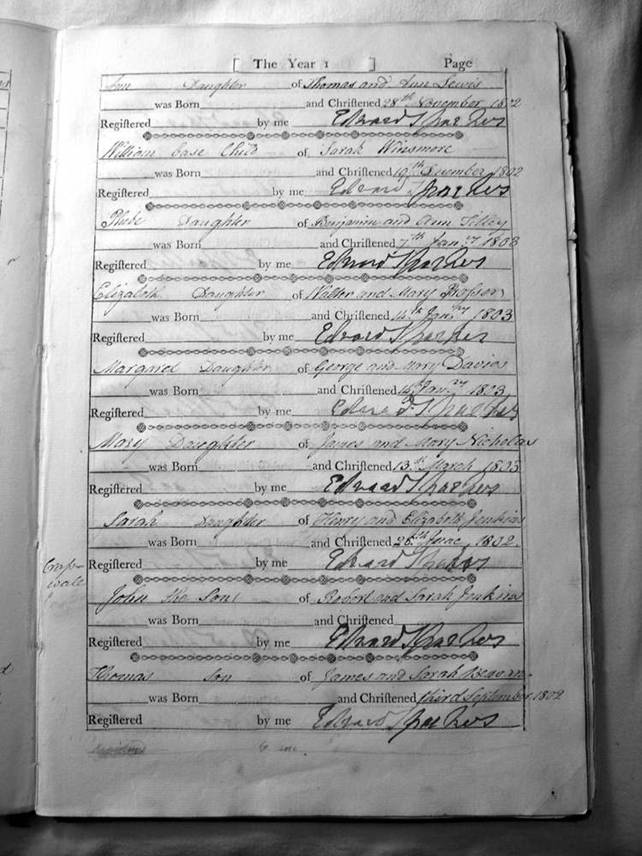 [ The Year 1 ] Page
Ann Daughter of Thomas and Ann Lewis
was Born and Chriſtened 28th November 1802
Regiſtered by me Edward Sparkes
William base Child of Sarah Winsmore
was Born and Chriſtened 10th December 1802
Regiſtered by me Edward Sparkes
Phebe Daughter of Benjamin and Ann Tilley
was Born and Chriſtened 7th Jany 1803
Regiſtered by me Edward Sparkes
Elizabeth Daughter of Walter and Mary Prosser
was Born and Chriſtened 14th Jany 1803
Regiſtered by me Edward Sparkes
Margaret Daughter of George and Mary Davies
was Born and Chriſtened 14th Jany 1803
Regiſtered by me Edward Sparkes
Mary Daughter of James and Mary Nicholas
was Born and Chriſtened 13th March 1803
Regiſtered by me Edward Sparkes
Sarah Daughter of Henry and Elizabeth Jenkins
was Born and Chriſtened 26th June 1802
Regiſtered by me Edward Sparkes
John the Son of Robert and Sarah Jenkins
was Born and Chriſtened
Regiſtered by me Edward Sparkes
Thomas Son of James and Sarah
was Born and Chriſtened third September 1802
Regiſtered by me Edward Sparkes